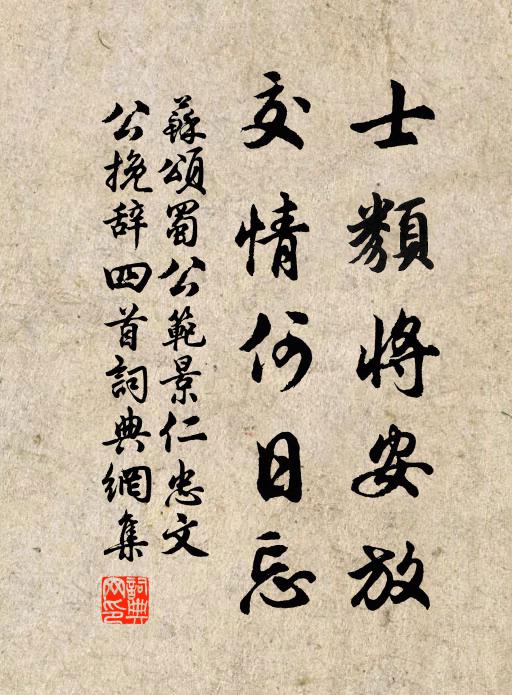 士類将安放
交情何日忘
蘇頌蜀公範景仁忠文
公挽辞四首詞典網集
詞典
网印